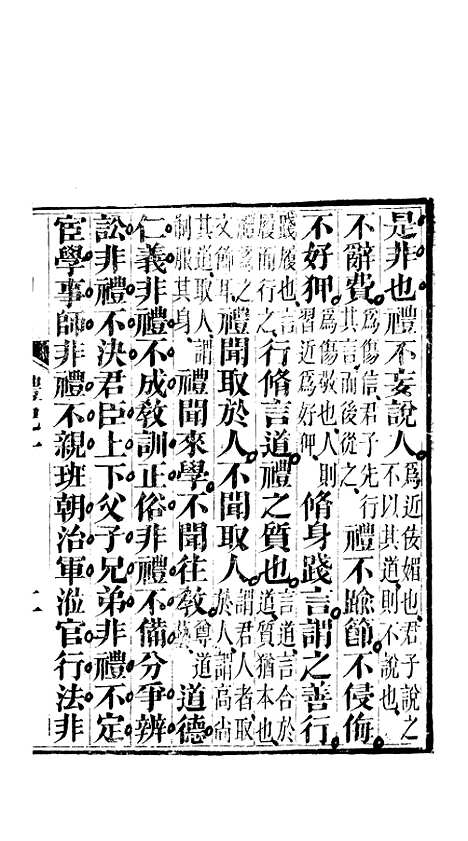 是非也禮不妄說人爲近佞媚也君子說之不以其道則不說也
不辭費爲傷信君子先行其言而後從之禮不踰節不侵侮
不好狎爲傷敬也人則習近爲好狎脩身踐言謂之善行
踐履也言履而行之行脩言道禮之質也言道言合於道質猶本也
禮爲之文飾耳禮聞取於人不聞取人謂君人者取於人謂高尚
其道取人謂制服其身禮聞來學不聞往教尊道藝道德
仁義非禮不成教訓正俗非禮不備分爭辨
訟非禮不決君臣上下父子兄弟非禮不定
宦學事師非禮不親班朝治軍涖官行法非
禮記一
二